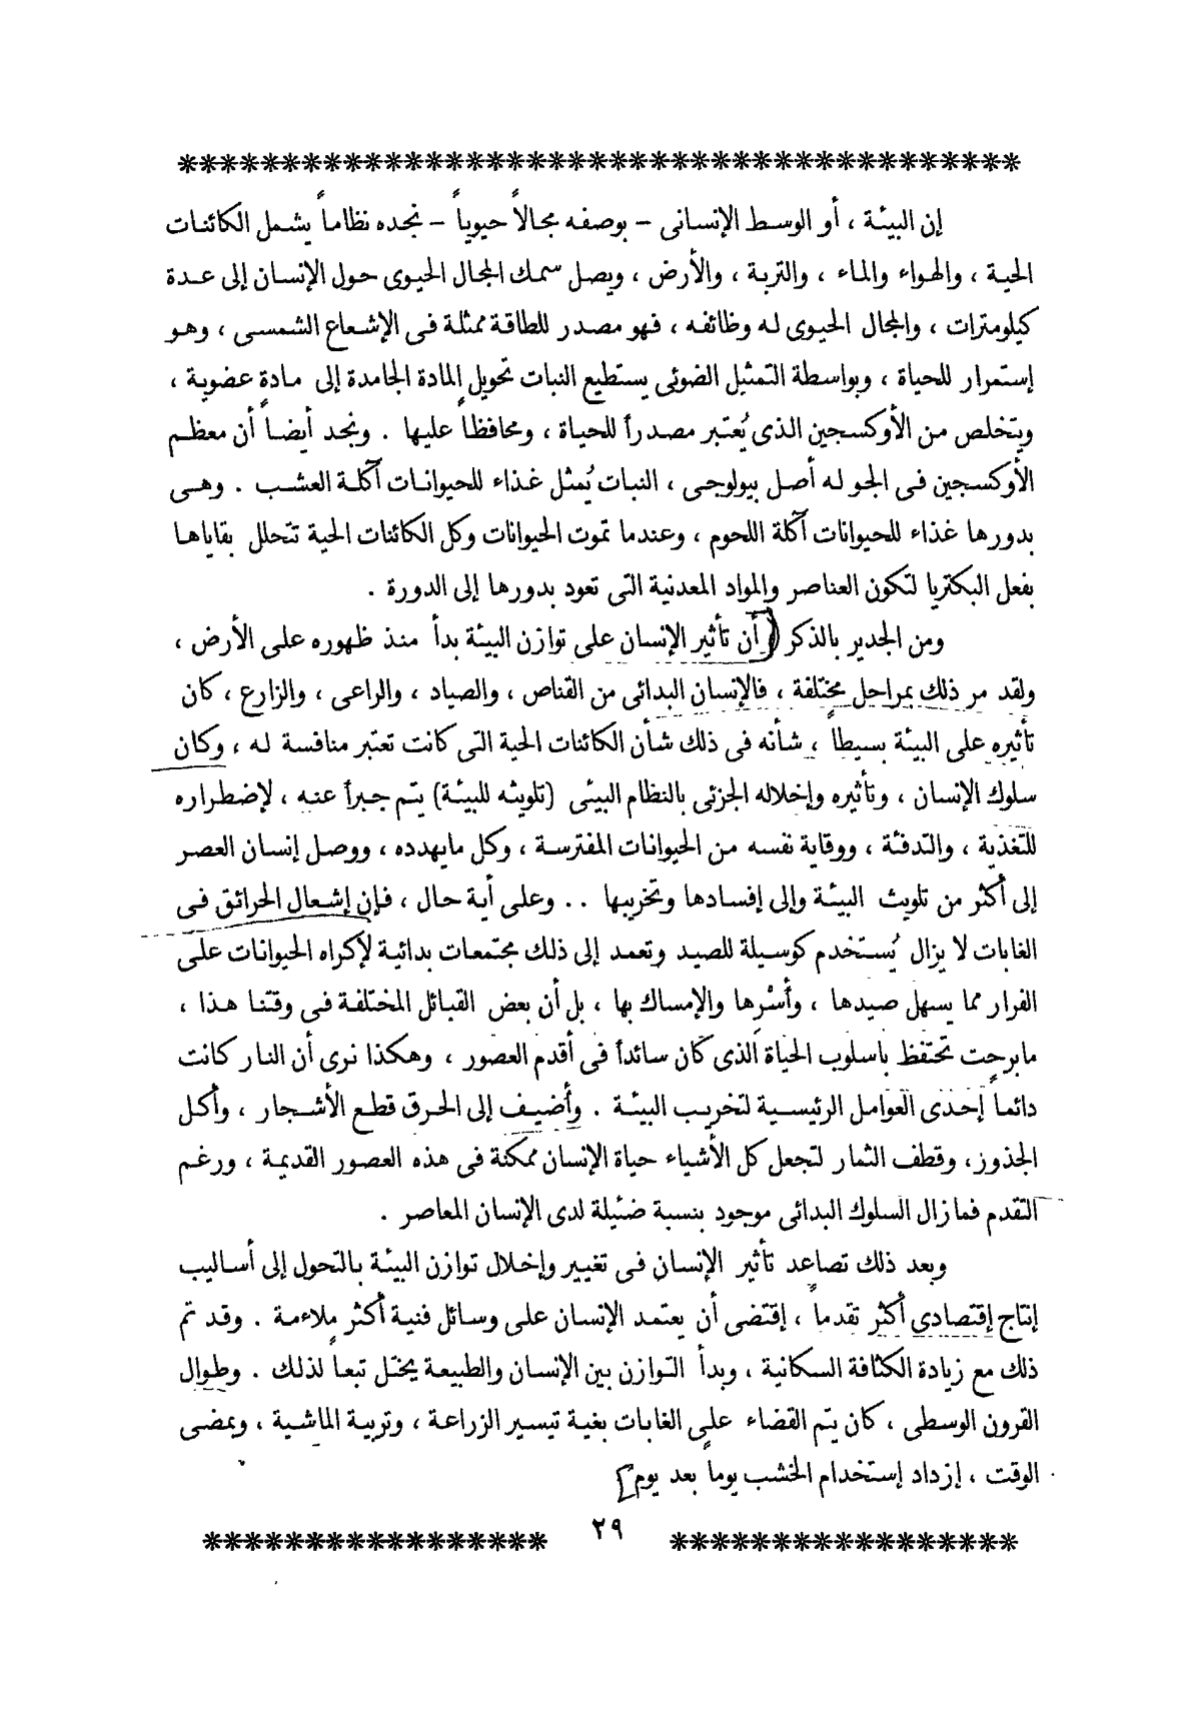 إن البيئة ، أو الوسط الإنسانى – بوصفه مجالاً حيوياً – نجده نظاماً يشمل الكائنات
الحية ، والهواء والماء ، والتربة ، والأرض ، ويصل سمك المجال الحيوى حول الإنسان إلى عدة
كيلومترات ، والمجال الحيوى له وظائفه ، فهو مصدر للطاقة ممثلة فى الإشعاع الشمسى ، وهو
إستمرار للحياة ، وبواسطة التمثيل الضوئى يستطيع النبات تحويل المادة الجامدة إلى مادة عضوية ،
ويتخلص من الأوكسجين الذى يُعتبر مصدراً للحياة ، ومحافظاً عليها . ونجد أيضاً أن معظم
الأوكسجين فى الجو له أصل بيولوجى ، النبات يُمثل غذاء للحيوانات آكلة العشب . وهى
بدورها غذاء للحيوانات آكلة اللحوم ، وعندما تموت الحيوانات وكل الكائنات الحية تتحلل بقاياها
بفعل البكتريا لتكون العناصر والمواد المعدنية التى تعود بدورها إلى الدورة .
ومن الجدير بالذكر أن تأثير الإنسان على توازن البيئة بدأ منذ ظهوره على الأرض ،
ولقد مر ذلك بمراحل مختلفة ، فالإنسان البدائى من القناص ، والصياد ، والراعى ، والزارع ، كان
تأثيره على البيئة بسيطاً ، شأنه فى ذلك شأن الكائنات الحية التى كانت تعتبر منافسة له ، وكان
سلوك الإنسان ، وتأثيره وإخلاله الجزئى بالنظام البيئى (تلويثه للبيئة) يتم جبراً عنه ، لإضطراره
للتغذية ، والتدفئة ، ووقاية نفسه من الحيوانات المفترسة ، وكل مايهدده ، ووصل إنسان العصر
إلى أكثر من تلويث البيئة وإلى إفسادها وتخريبها .. وعلى أية حال ، فإن إشعال الحرائق فى
الغابات لا يزال يُستخدم كوسيلة للصيد وتعمد إلى ذلك مجتمعات بدائية لإكراه الحيوانات على
الفرار مما يسهل صيدها ، وأَسْرِها والإمساك بها ، بل أن بعض القبائل المختلفة فى وقتنا هذا ،
مابرحت تحتفظ بأسلوب الحياة الذى كان سائداً فى أقدم العصور ، وهكذا نرى أن النار كانت
دائماً إحدى العوامل الرئيسية لتخريب البيئة . وأضيف إلى الحرق قطع الأشجار ، وأكل
الجذوز، وقطف الثمار لتجعل كل الأشياء حياة الإنسان ممكنة فى هذه العصور القديمة ، ورغم
التقدم فمازال السلوك البدائى موجود بنسبة ضئيلة لدى الإنسان المعاصر .
وبعد ذلك تصاعد تأثير الإنسان فى تغيير وإخلال توازن البيئة بالتحول إلى أساليب
إنتاج إقتصادى أكثر تقدماً ، إقتضى أن يعتمد الإنسان على وسائل فنية أكثر ملاءمة . وقد تم
ذلك مع زيادة الكثافة السكانية ، وبدأ التوازن بين الإنسان والطبيعة يختل تبعاً لذلك . وطوال
القرون الوسطى ، كان يتم القضاء على الغابات بغية تيسير الزراعة ، وتربية الماشية ، وبمضى
الوقت ، إزداد إستخدام الخشب يوماً بعد يوم
٢٩